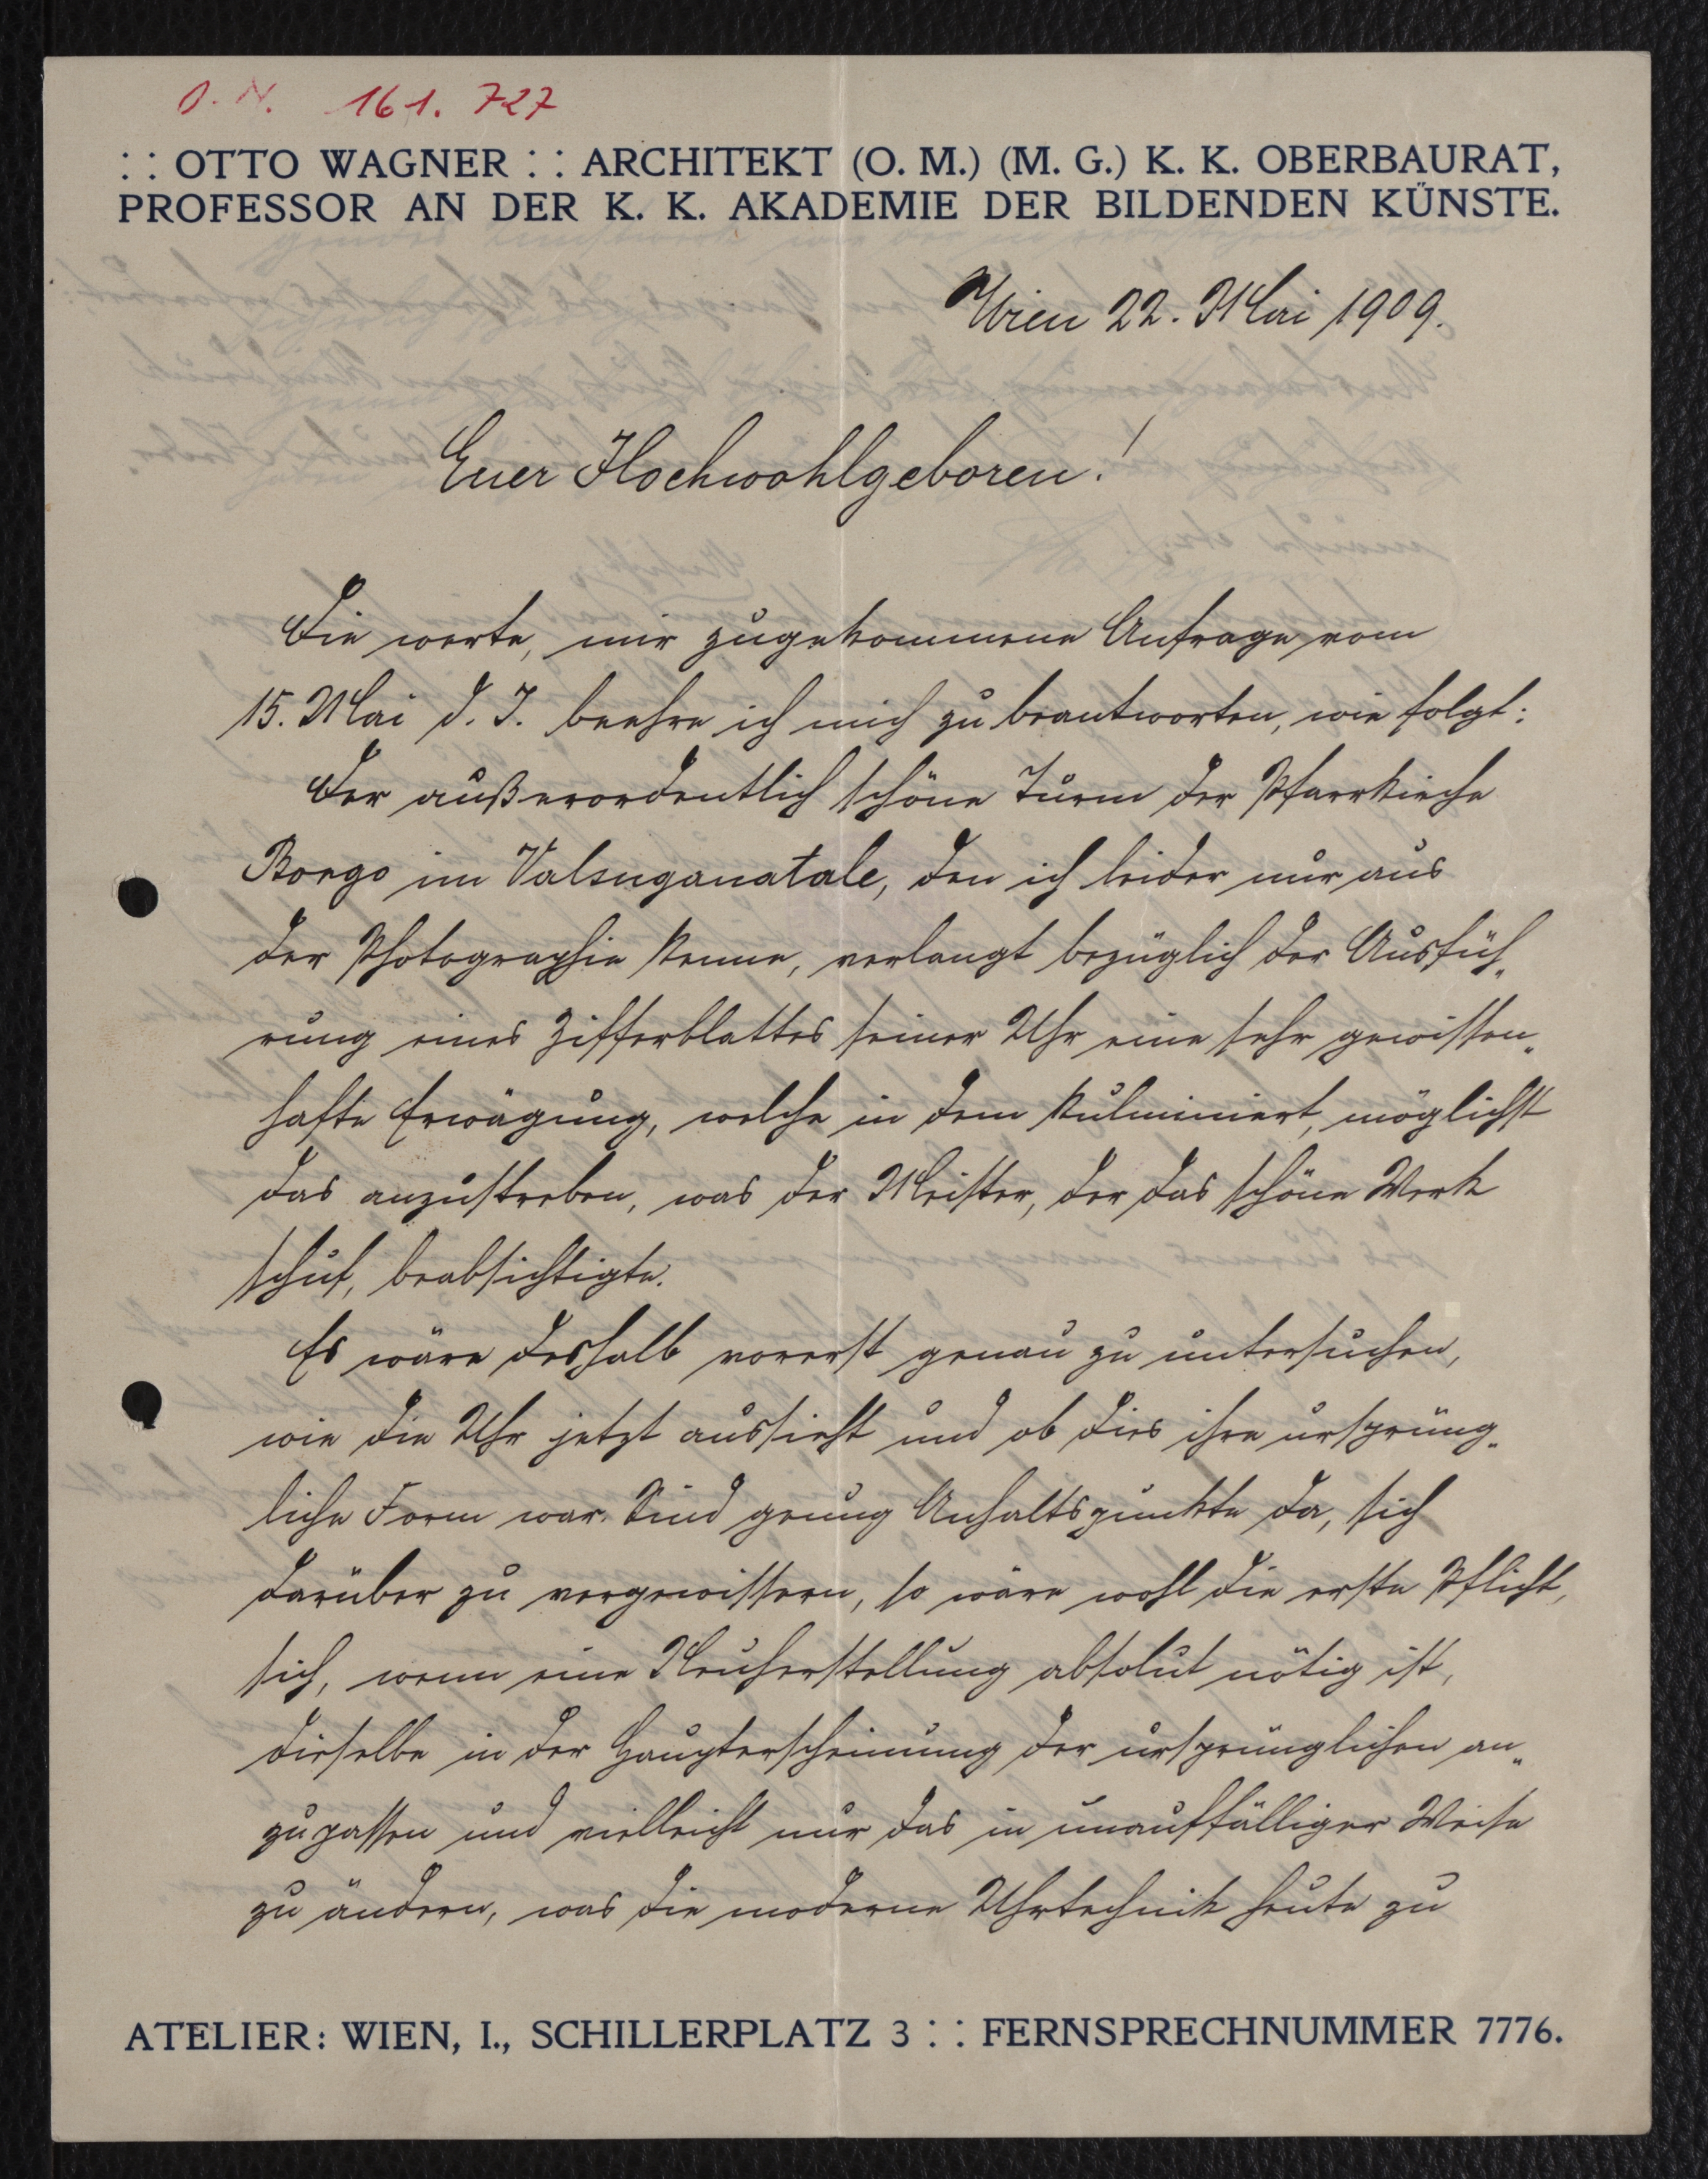 O. N. 161. 727
: : OTTO WAGNER : : ARCHITEKT (O. M.) (M. G.) K. K. OBERBAURAT,
PROFESSOR AN DER K. K. AKADEMIE DER BILDENDEN KÜNSTE.
Wien 22. Mai 1909.
Euer Hochwohlgeboren!
Die werte, mir zugekommene Anfrage vom
15. Mai d. J. beehre ich mich zu beantworten, wie folgt:
Der außerordentlich schöne Turm der Pfarrkirche
Borgo im Valsuganatale, den ich leider nur aus
der Photographie kenne, verlangt bezüglich der Ausfüh„
rung eines Zifferblattes seiner Uhr eine sehr gewissen„
hafte Erwägung, welche in dem kulminiert, möglichst
das anzustreben, was der Meister, der das schöne Werk
schuf, beabsichtigte.
Es wäre deshalb vorerst genau zu untersuchen,
wie die Uhr jetzt aussieht und ob dies ihre ursprüng„
liche Form war. Sind genug Anhaltspunkte da, sich
darüber zu vergewissern, so wäre wohl die erste Pflicht,
sich, wenn eine Neuherstellung absolut nötig ist,
dieselbe in der Haupterscheinung der ursprünglichen an„
zupassen und vielleicht nur das in unauffälliger Weise
zu ändern, was die moderne Uhrtechnik heute zu
ATELIER: WIEN, I., SCHILLERPLATZ 3 : : FERNSPRECHNUMMER 7776.